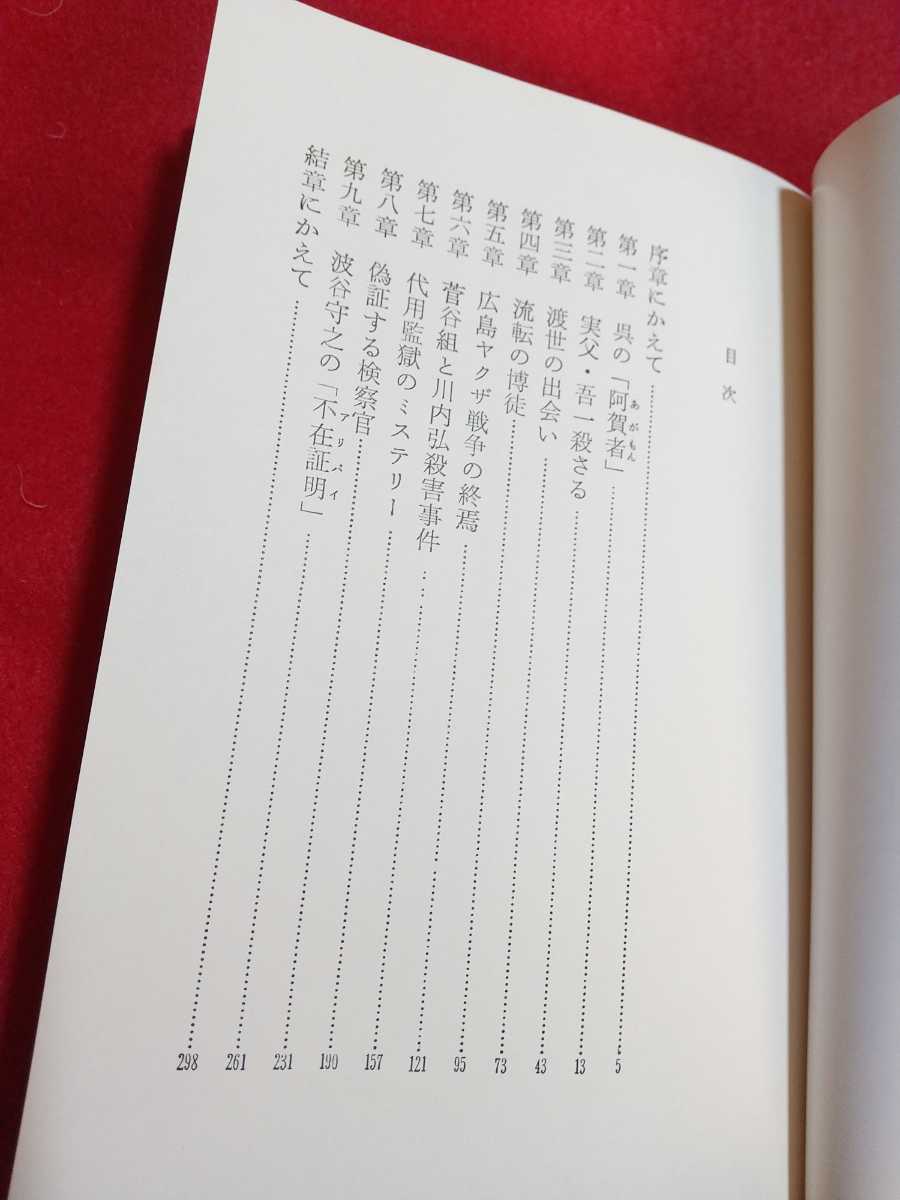 目次
序章にかえて……5
第一章 呉の「阿賀者」……13
あがもん
第二章 実父・吾一殺さる……43
第三章 渡世の出会い……73
第四章 流転の博徒……95
第五章 広島ヤクザ戦争の終焉……121
第六章 菅谷組と川内弘殺害事件……157
第七章 代用監獄のミステリー……190
第八章 偽証する検察官……231
第九章 波谷守之の「不在証明」……261
アリバイ
結章にかえて……298